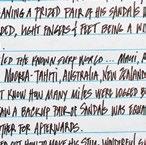 EANING A PRIZED PAIR OF HIS SANDALS W
DED, LIGHT FINGERS & FEET BEING A WI
LED THE KNOWN SURF WORLD ... MAUI,
NOORA-TAHITI, AUSTRALIA, NEW ZEALAND
T KNOW HOW MANY MILES WERE LOGGED B
AN A BACKUP PAIR OF SANDALS WAS EQUAL
THER FOR AFTERWARDS.
OUT HOW TO MAKE HIS STILL WONDERFUL